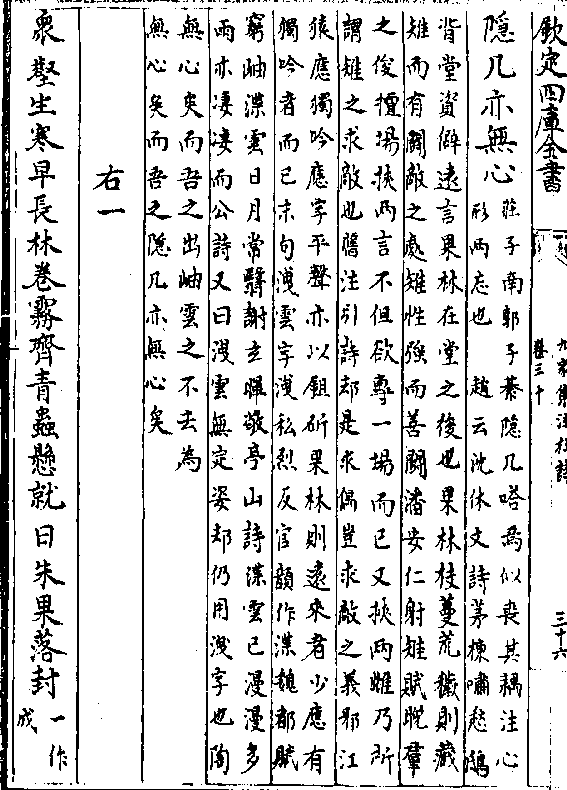 欽定四庫全書
九家集注杜詩
卷三十
三十六
隱几亦無心
莊子南郭子綦隱几嗒焉似喪其耦注心
形兩忘也　趙云沈休文詩茅棟嘯愁鴟
背堂資僻遠言果林在堂之後也果林枝蔓荒穢則藏
雉而有鬭敵之處雉性強而善鬭潘安仁射雉賦睨羣
之俊擅場挾兩言不但欲專一場而已又挾兩雌乃所
謂雉之求敵也舊注引詩却是求偶豈求敵之義邪江
猿應獨吟應字平聲亦以鉏斫果林則遠來者少應有
獨吟者而已末句洩雲字洩私烈反官韻作渫魏都賦
窮岫渫雲日月常翳謝玄暉敬亭山詩渫雲已漫漫多
雨亦凄凄而公詩又曰洩雲無定姿却仍用洩字也陶
無心矣而吾之出岫雲之不去為
無心矣而吾之隱几亦無心矣
右一
衆壑生寒早長林卷霧齊青蟲懸就日朱果落封
一作
成